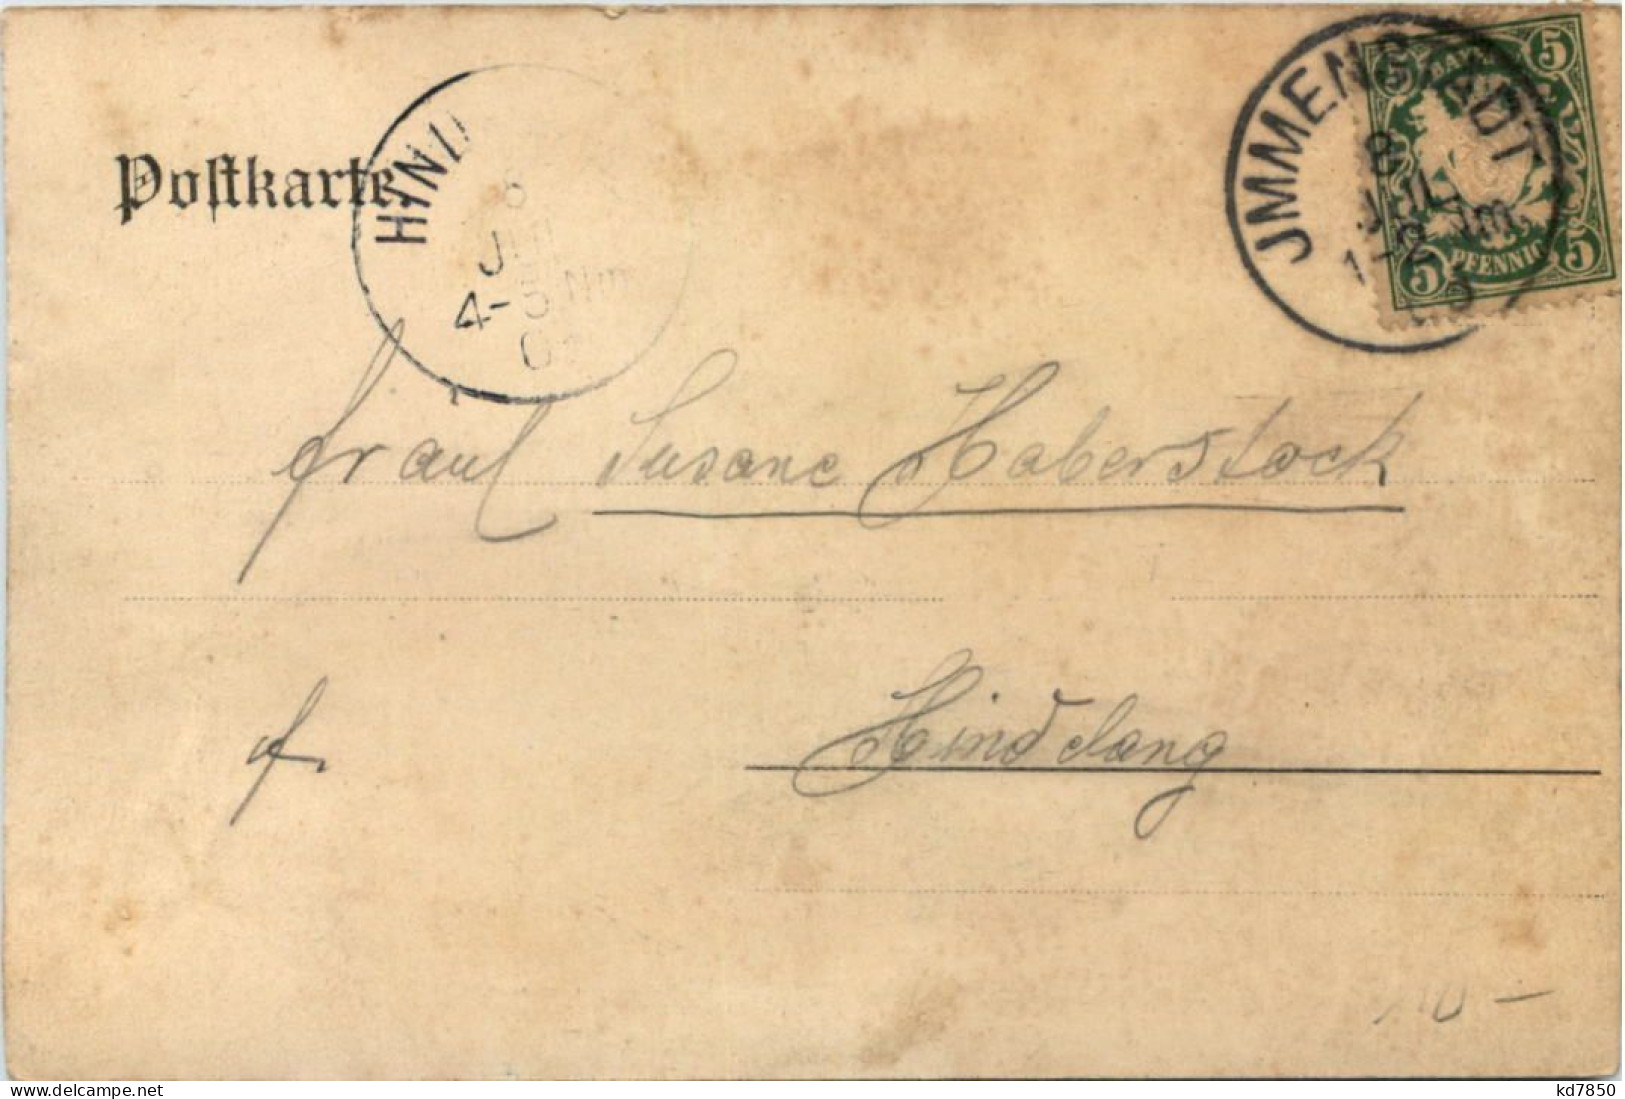 Postkarte
HIN
JUL
4-5 Nm
JMMENSTADT
8
JUL
1-2 Nm
5 5
BAYERN
5 PFENNIG 5
Fräul Susane Haberstock
Hindelang
delcampe.net
kd7850